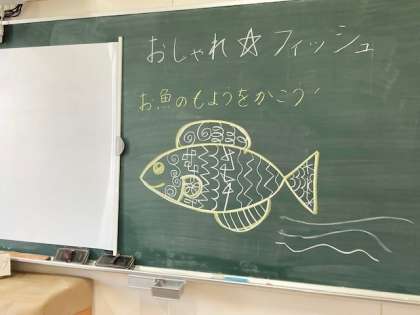 おしゃれ☆フィッシュ
お魚のもようをかこう!